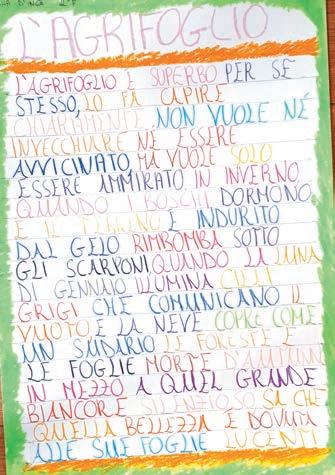 L'AGRIFOGLIO
L'AGRIFOGLIO È SUPERBO PER SE
STESSO, LO FA CAPIRE
CHIARAMENTE NON VUOLE NÉ
INVECCHIARE NÉ ESSERE
AVVICINATO MA VUOLE SOLO
ESSERE AMMIRATO IN INVERNO
QUANDO I BOSCHI DORMONO
E IL TERRENO È INDURITO
DAL GELO RIMBOMBA SOTTO
GLI SCARPONI, QUANDO LA LUNA
DI GENNAIO ILLUMINA CIELI
GRIGI CHE COMUNICANO IL
VUOTO E LA NEVE COPRE COME
UN SUDARIO LE FORESTE E
LE FOGLIE MORTE D'AUTUNNO
IN MEZZO A QUEL GRANDE
BIANCORE SILENZIOSO SA CHE
QUELLA BELLEZZA È DOVUTA
ALLE SUE FOGLIE LUCENTI